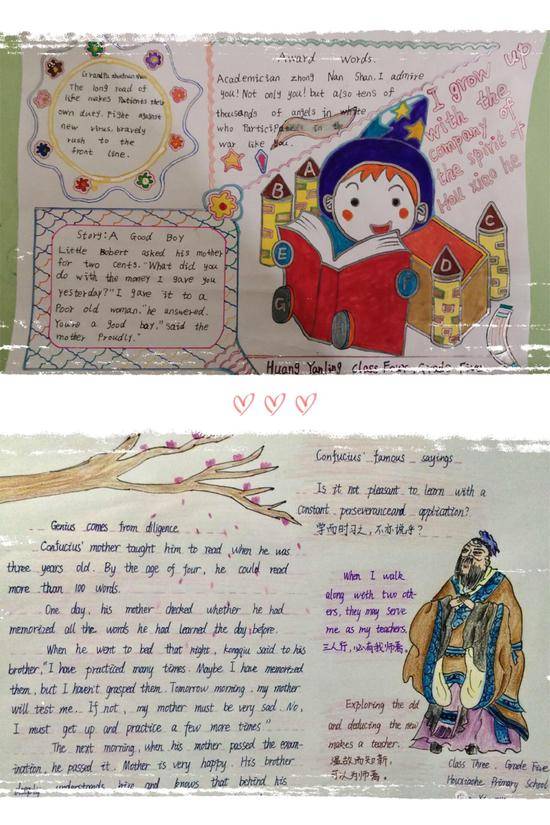 Grandpa
The long road of
life makes Patients their
own duty. Fight against
new virus, bravely
rush to the
front line.
Award words.
Academician zhong Nan Shan. I admire
you! Not only you! but also tens of
thousands of angels in white
who Participates in the
war like you.
I grow up
with the
company of
the spirit of
Hou xiao he
Story: A Good Boy
Little Robert asked his mother
for two cents. "What did you
do with the money I gave you
yesterday?" I gave it to a
Poor old woman," he answered.
You're a good boy," said the
mother Proudly."
B
A
C
E
F
D
G
Huang Yanling class Four, Grade Five
Genius comes from diligence
Confucius' mother taught him to read when he was
three years old. By the age of four, he could read
more than 100 words.
One day, his mother checked whether he had
memorized all the words he had learned the day before.
When he went to bed that night, kongqiu said to his
brother, "I have practiced many times. Maybe I have memorized
them, but I haven't grasped them. Tomorrow morning, my mother
will test me. If not, my mother must be very sad. No,
I must get up and practice a few more times"
The next morning, when his mother passed the exam-
ination, he passed it. Mother is very happy. His brother
understands him and knows that behind his
Confucius' famous sayings
Is it not pleasant to learn with a
constant perseverance and application?
学而时习之,不亦说乎?
When I walk
along with two oth-
ers, they may serve
me as my teachers.
三人行,必有我师焉。
Exploring the old
and deducing the new
makes a teacher.
温故而知新,
可以为师焉。
Class Three, Grade Five
Primary School